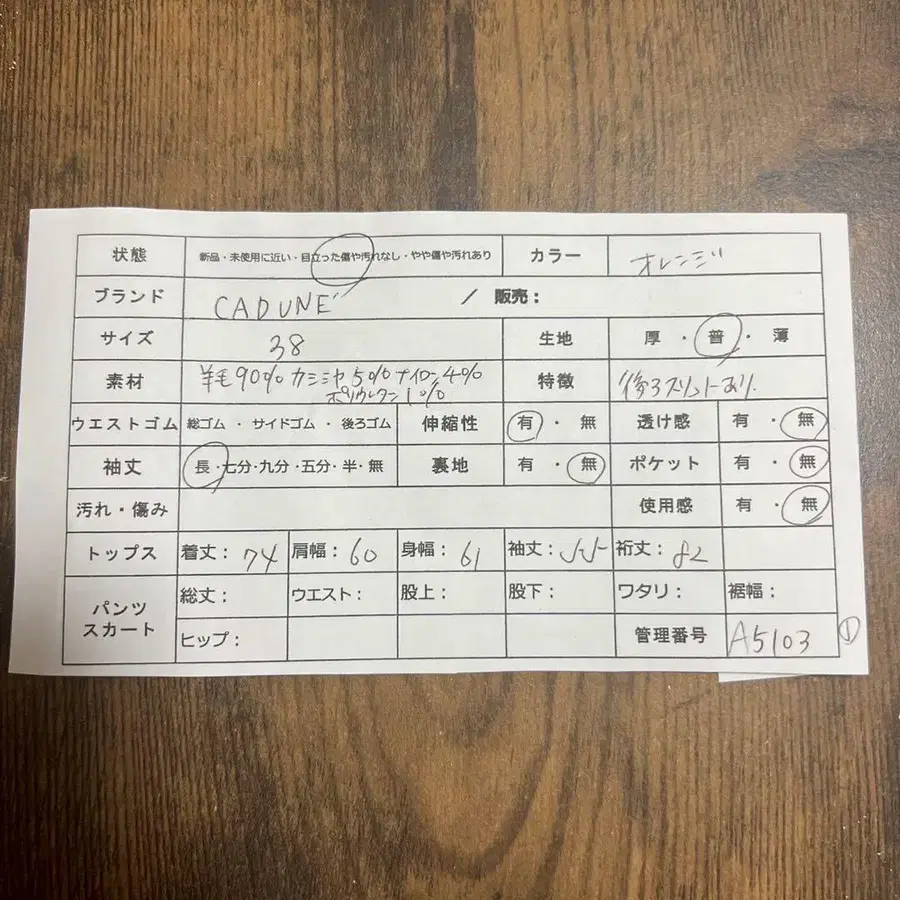 状態 新品・未使用に近い・目立った傷や汚れなし・やや傷や汚れあり カラー オレンジ
ブランド CADUNE / 販売：
サイズ 38 生地 厚・普・薄
素材 羊毛90% カシミヤ5% ナイロン4% 特徴 後ろスリットあり.
ポリウレタン1%
ウエストゴム 総ゴム ・ サイドゴム ・ 後ろゴム 伸縮性 有 ・ 無 透け感 有 ・ 無
袖丈 長・七分・九分・五分・半・無 裏地 有 ・ 無 ポケット 有 ・ 無
汚れ・傷み 使用感 有 ・ 無
トップス 着丈：74 肩幅：60 身幅：61 袖丈：55 裄丈：82
パンツ 総丈： ウエスト： 股上： 股下： ワタリ： 裾幅：
スカート ヒップ： 管理番号 A5103 ①